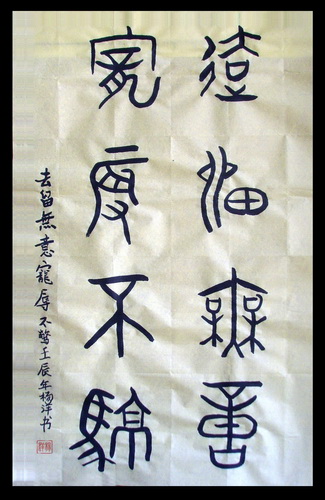 去留無意
寵辱不驚
去留無意寵辱不驚壬辰年杨洋书